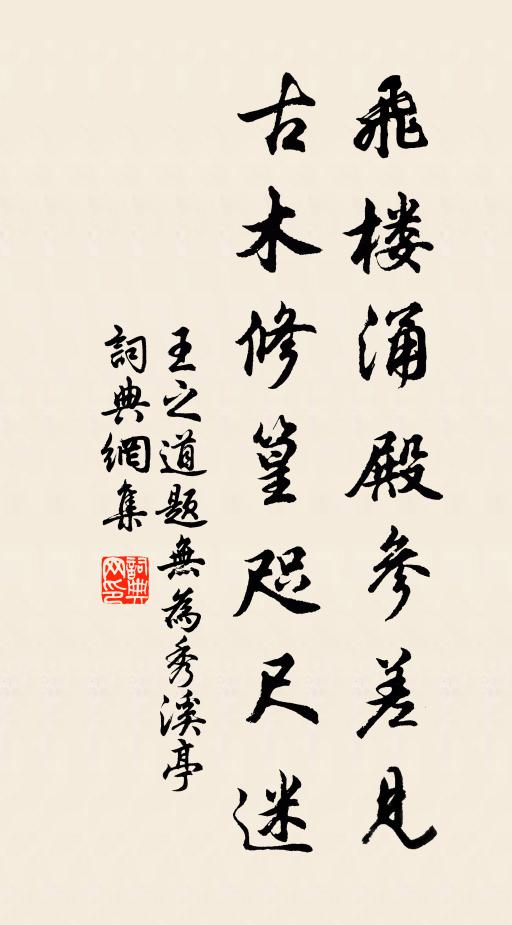 飛楼涌殿參差見
古木修篁咫尺迷
王之道題無為秀溪亭
詞典網集
詞典网印